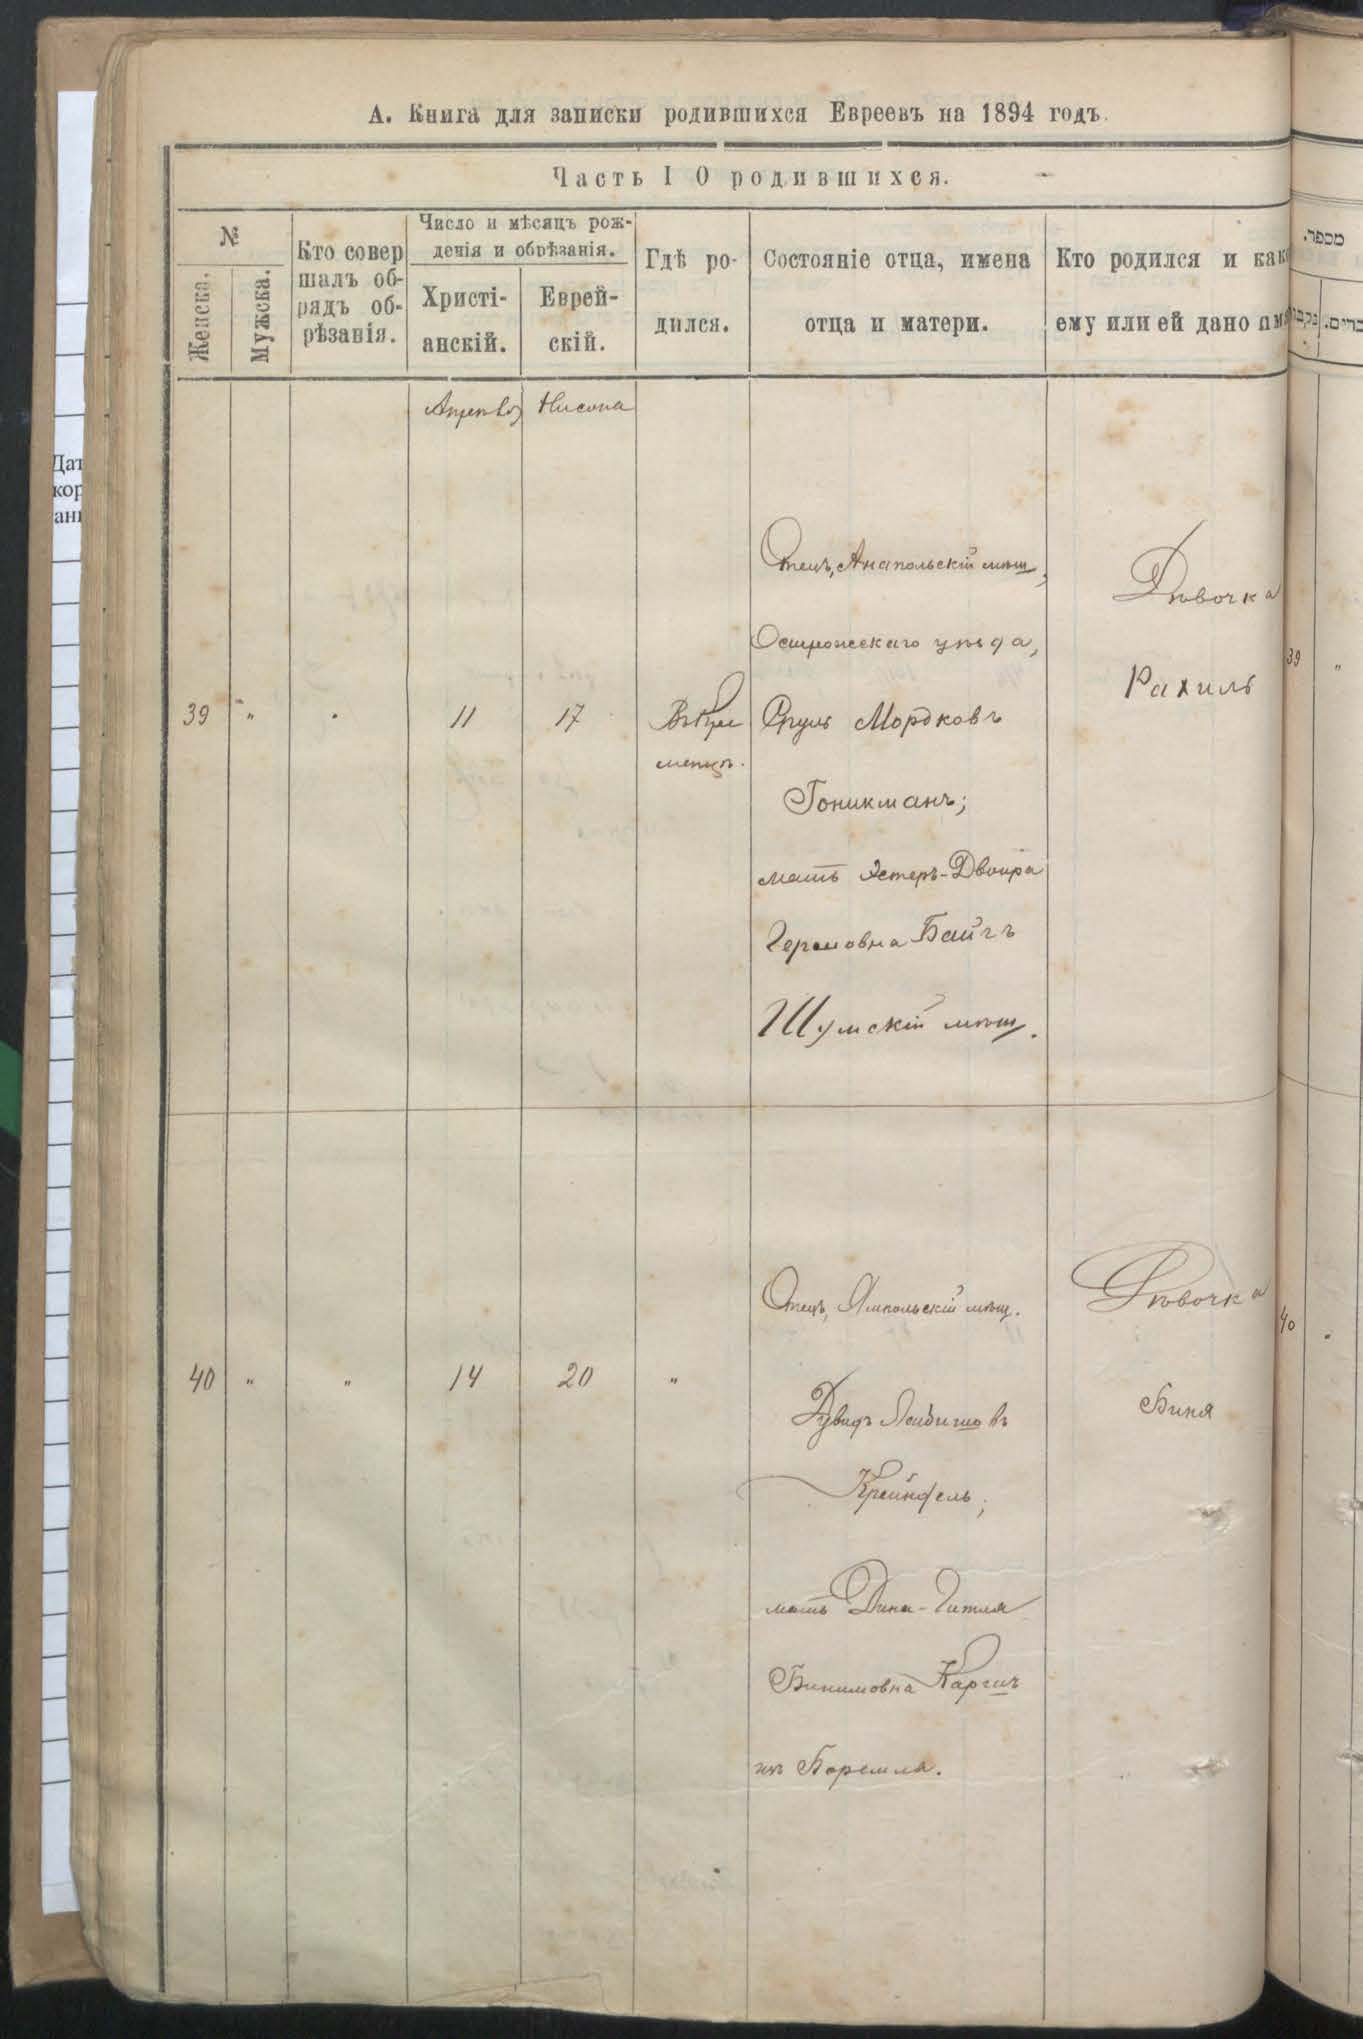 А. Книга для записки родившихся Евреевъ на 1894 годъ.
Часть I О родившихся.
№
Женска.
Мужска.
Кто совер
шалъ об-
рядъ об-
рѣзанія.
Число и мѣсяцъ рож-
денія и обрѣзанія.
Христі-
анскій.
Еврей-
скій.
Гдѣ ро-
дился.
Состояніе отца, имена
отца и матери.
Кто родился и как
ему или ей дано им
מספר.
Нисона
39 " " 11 17
Отецъ, Анапольскій мѣщ.,
Острожскаго уѣзда,
Сруль Мордковъ
Гоникманъ;
мать Эстеръ-Двойра
Гершовна Байгъ
Шумскій мѣщ.
Дѣвочка
Рахиль
39 "
40 " " 14 20 "
Отецъ, Ямпольскій мѣщ.
Дувидъ Лейбишовъ
Крейндель;
мать Дина-Гитля
Бинимовна
изъ Боремля.
Дѣвочка
Биня
40 "
Дат
кор
ан